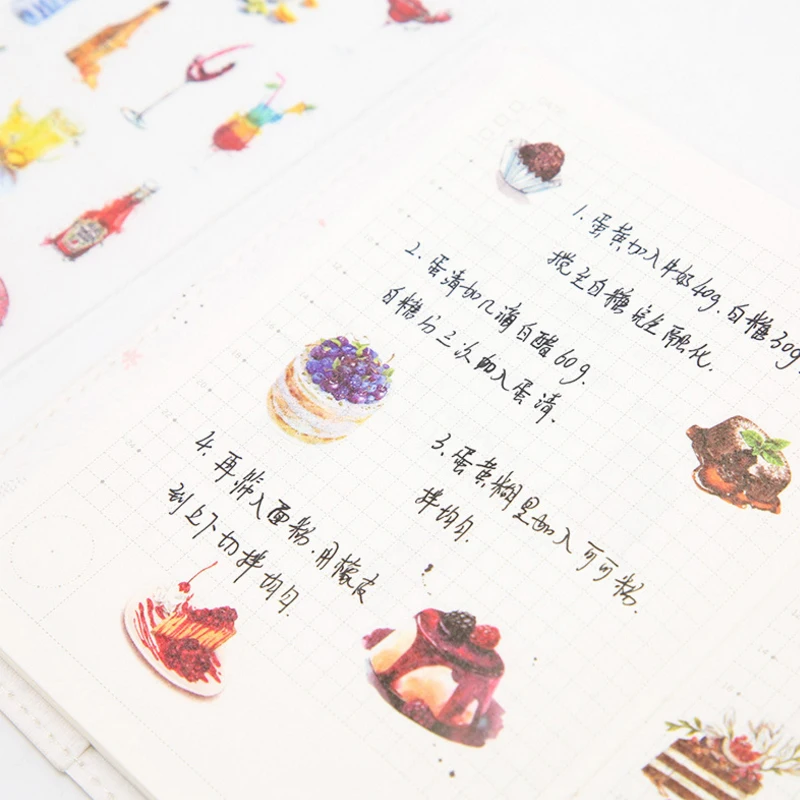 1. 蛋黄加入牛奶40g. 白糖30g.
搅至白糖完全融化.
2. 蛋清加几滴白醋60g.
白糖分三次加入蛋清.
3. 蛋黄糊里加入可可粉.
拌均匀.
4. 再筛入面粉. 用橡皮
刮上下切拌均匀.